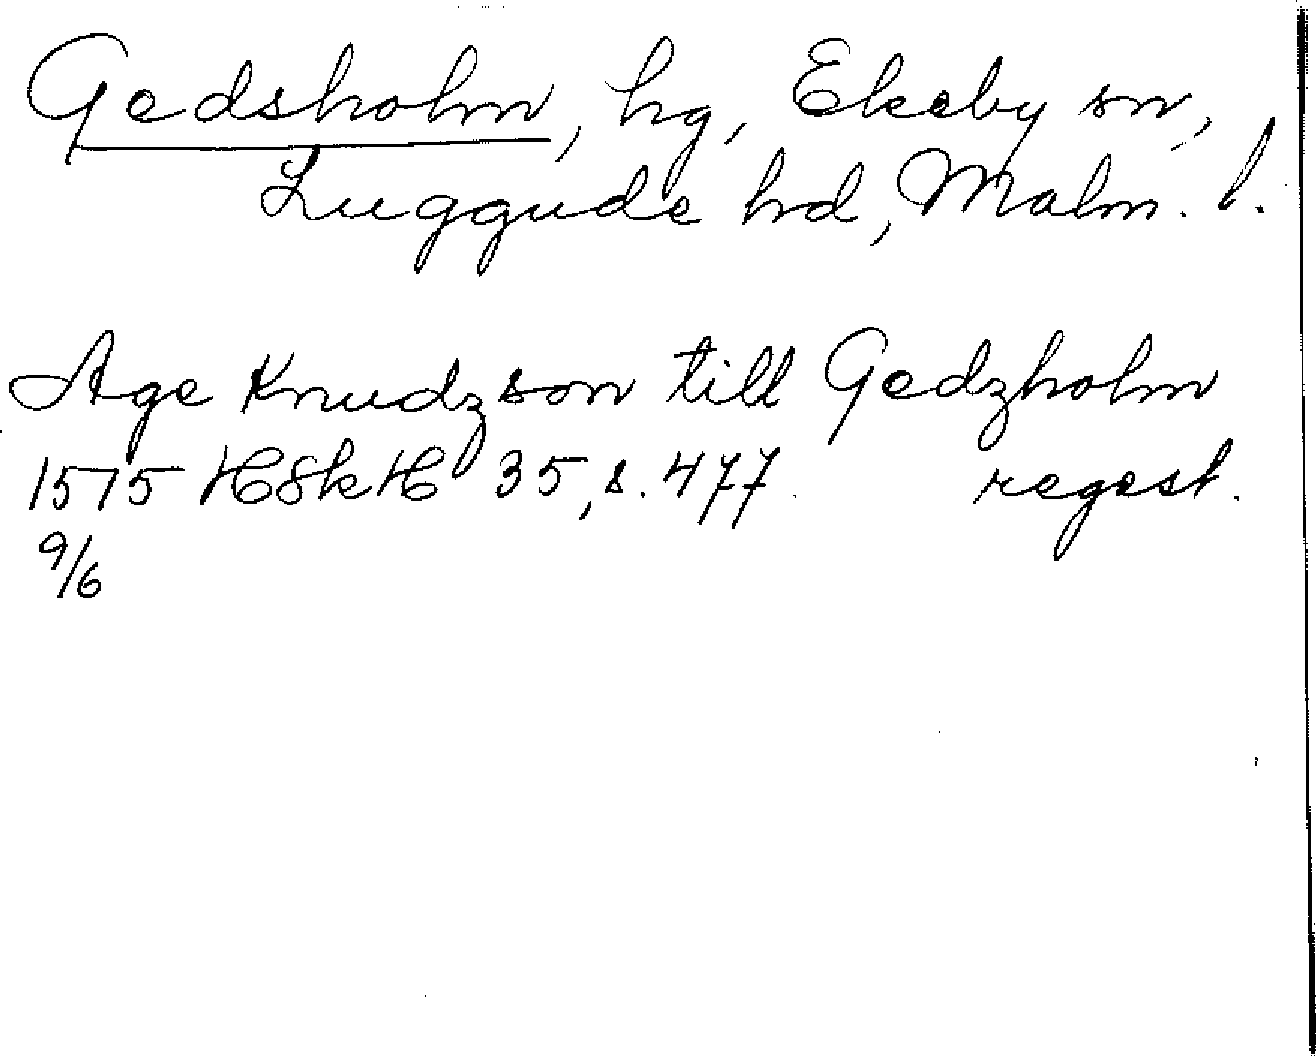 Gedsholm, hg, Ekeby sn,
Luggude hd, Malm. l.
Age Knudzson till Gedzholm
1575 HSkH 35, s. 477 regest.
9/6